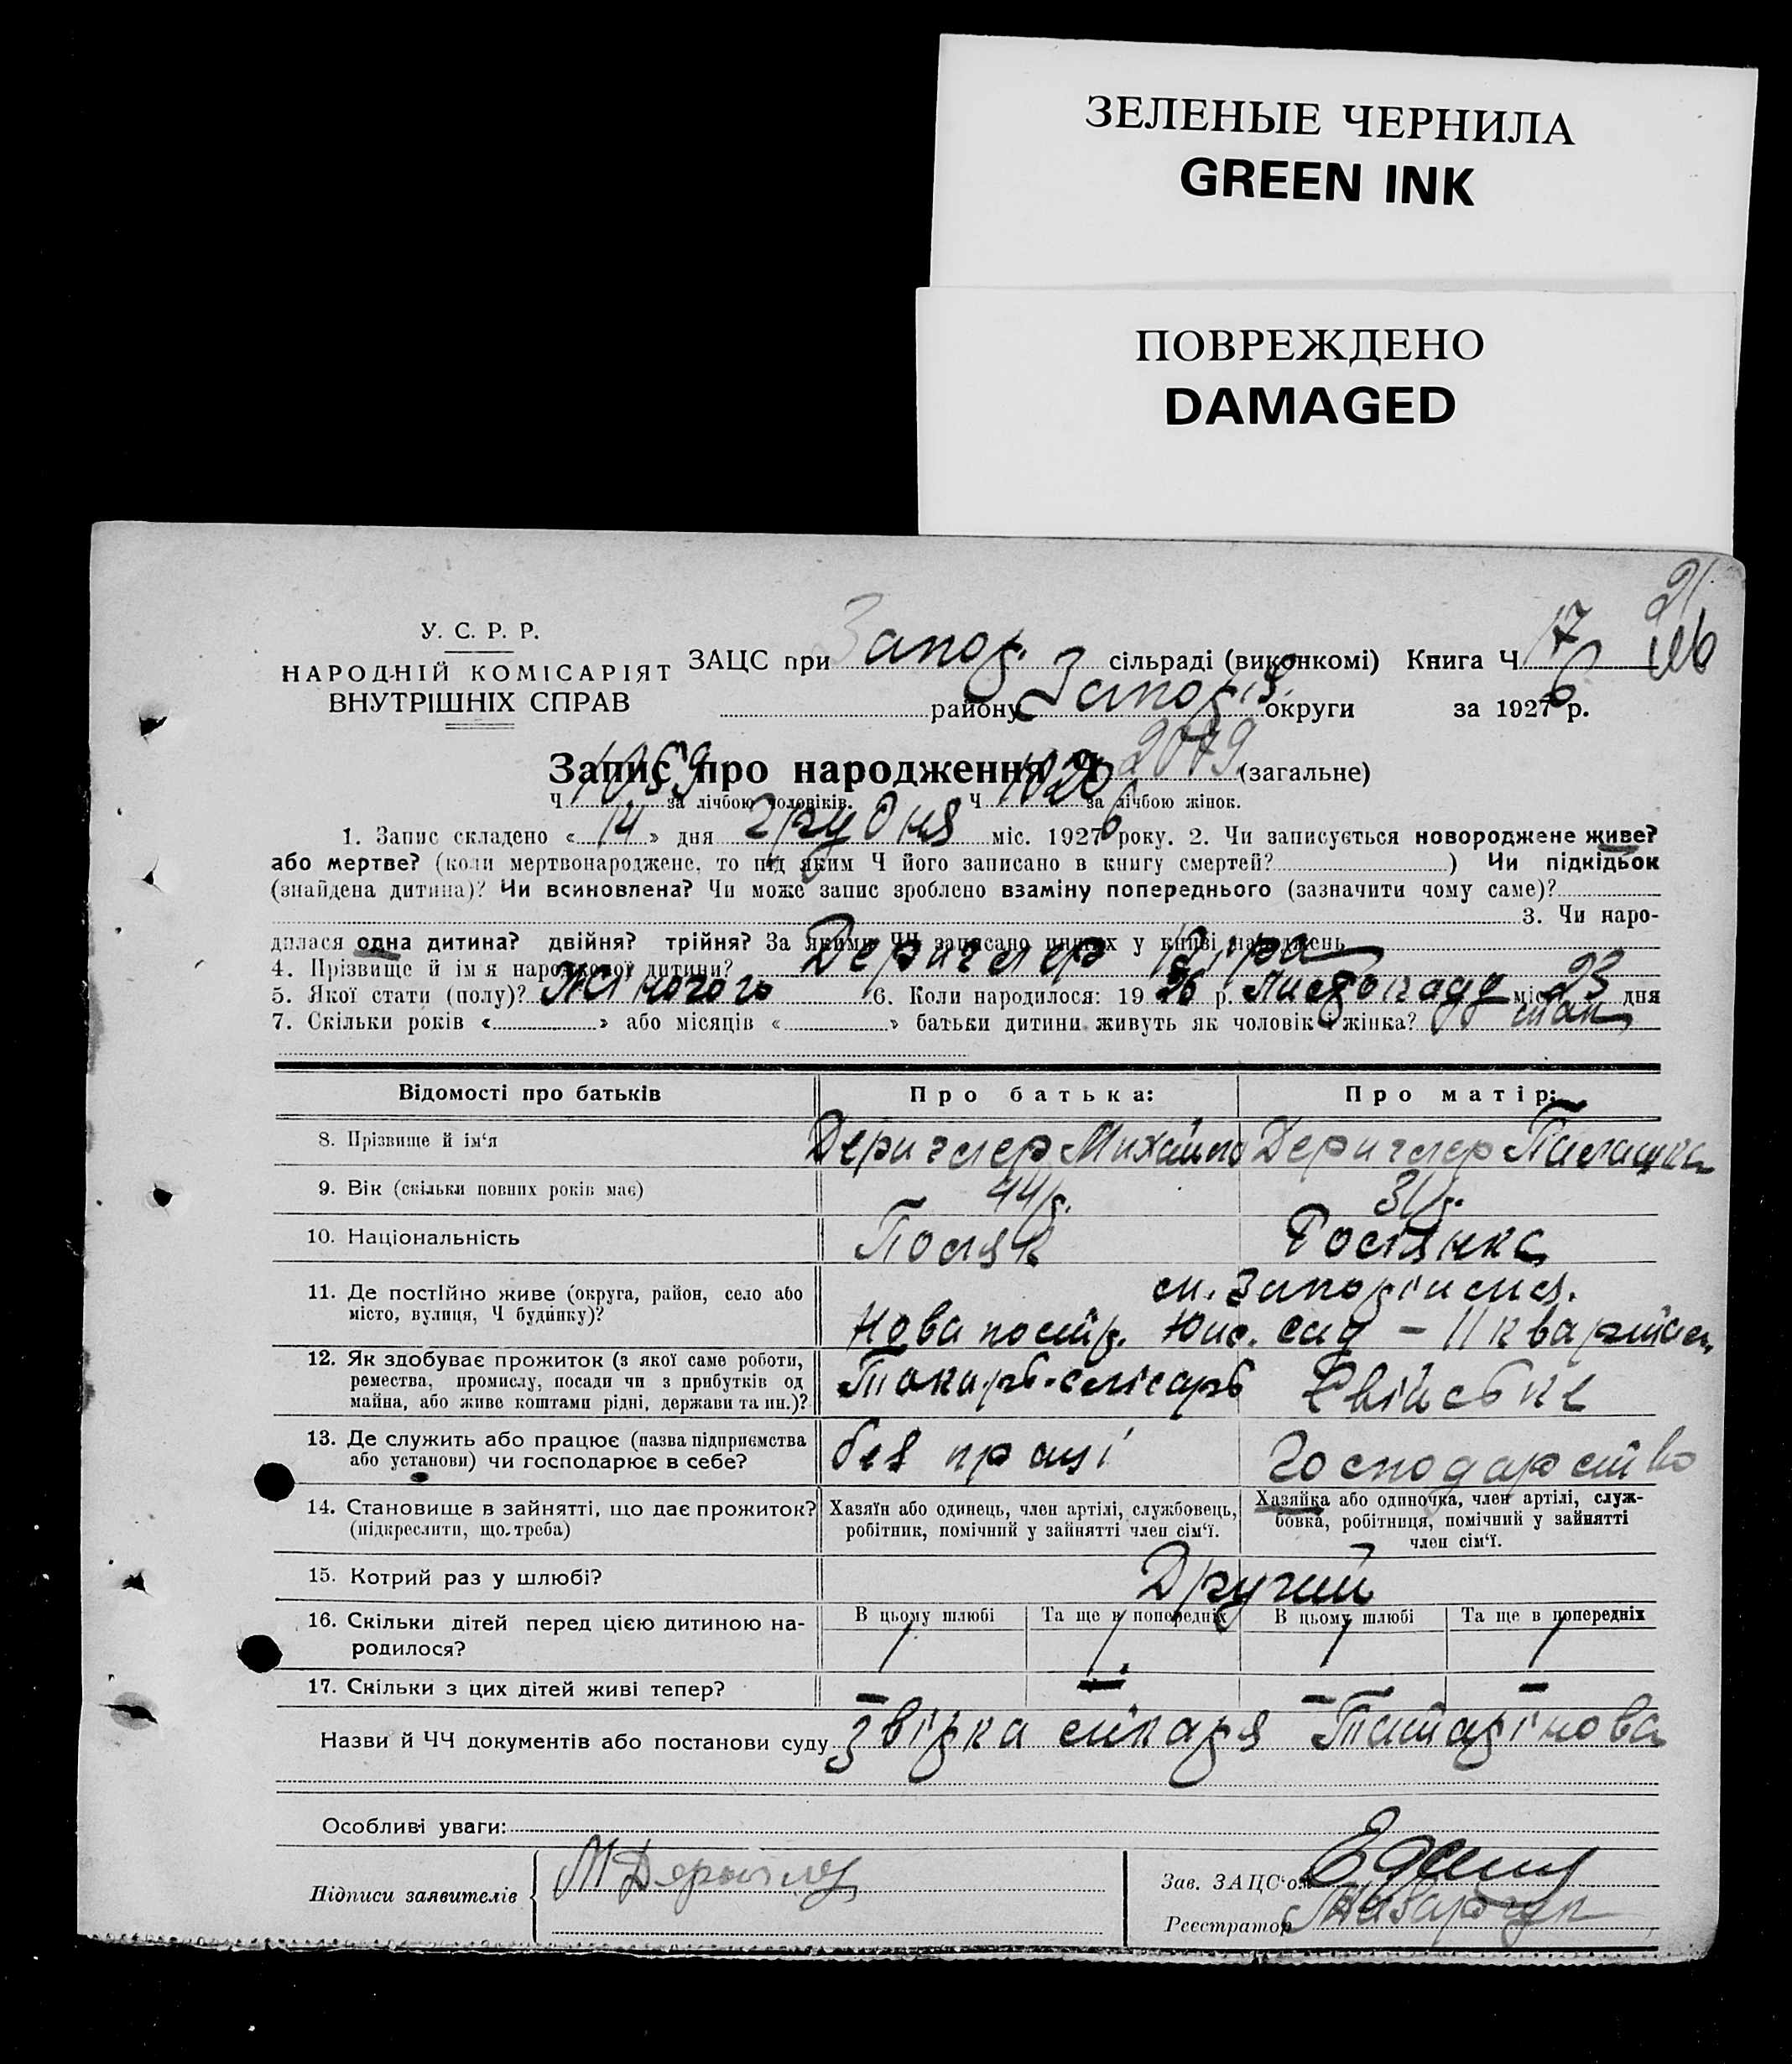 ЗЕЛЕНЫЕ ЧЕРНИЛА
GREEN INK
ПОВРЕЖДЕНО
DAMAGED
21
У. С. Р. Р.
НАРОДНІЙ КОМІСАРІЯТ
ВНУТРІШНІХ СПРАВ
ЗАЦС при Запоріз. сільраді (виконкомі) Книга Ч 17
району Запоріз. округи за 1926 р.
Запис про народження Ч 2079 (загальне)
Ч 1059 за лічбою чоловіків. Ч 1020 за лічбою жінок.
1. Запис складено « 14 » дня грудня міс. 1926 року. 2. Чи записується новороджене живе?
або мертве? (коли мертвонароджене, то під яким Ч його записано в книгу смертей? ) Чи підкідьок
(знайдена дитина)? Чи всиновлена? Чи може запис зроблено взаміну попереднього (зазначити чому саме)?
3. Чи наро-
дилася одна дитина? двійня? трійня? За якими ЧЧ записано инших у книзі народжень
4. Прізвище й ім'я народженої дитини? Дериглер
5. Якої стати (полу)? Жіночого 6. Коли народилося: 1926 р. Листопаду міс. 23 дня
7. Скільки років « » або місяців « » батьки дитини живуть як чоловік і жінка?
Відомості про батьків Про батька: Про матір:
8. Прізвище й ім'я Дериглер Михайло Дериглер Палашка
9. Вік (скільки повних років має) 44 р. 31 р.
10. Національність Поляк Росіянка
11. Де постійно живе (округа, район, село або
місто, вулиця, Ч будинку)?
м. Запоріжжя.
Нова постр. сад – II квартал
12. Як здобуває прожиток (з якої саме роботи,
ремества, промислу, посади чи з прибутків од
майна, або живе коштами рідні, держави та ин.)?
Токарь-слісарь Свійське
13. Де служить або працює (назва підприємства
або установи) чи господарює в себе?
без праці господарство
14. Становище в зайнятті, що дає прожиток?
(підкреслити, що треба)
Хазяїн або одинець, член артілі, службовець,
робітник, помічний у зайнятті член сім'ї.
Хазяйка або одиночка, член артілі, служ-
бовка, робітниця, помічний у зайнятті
член сім'ї.
15. Котрий раз у шлюбі? Другий
16. Скільки дітей перед цією дитиною на-
родилося?
В цьому шлюбі Та ще в попередніх В цьому шлюбі Та ще в попередніх
1 1 1 1
17. Скільки з цих дітей живі тепер? – – – –
Назви й ЧЧ документів або постанови суду звірка лікаря Татарінова
Особливі уваги:
Підписи заявителів М Дериглер
Зав. ЗАЦС'ом
Реєстратор